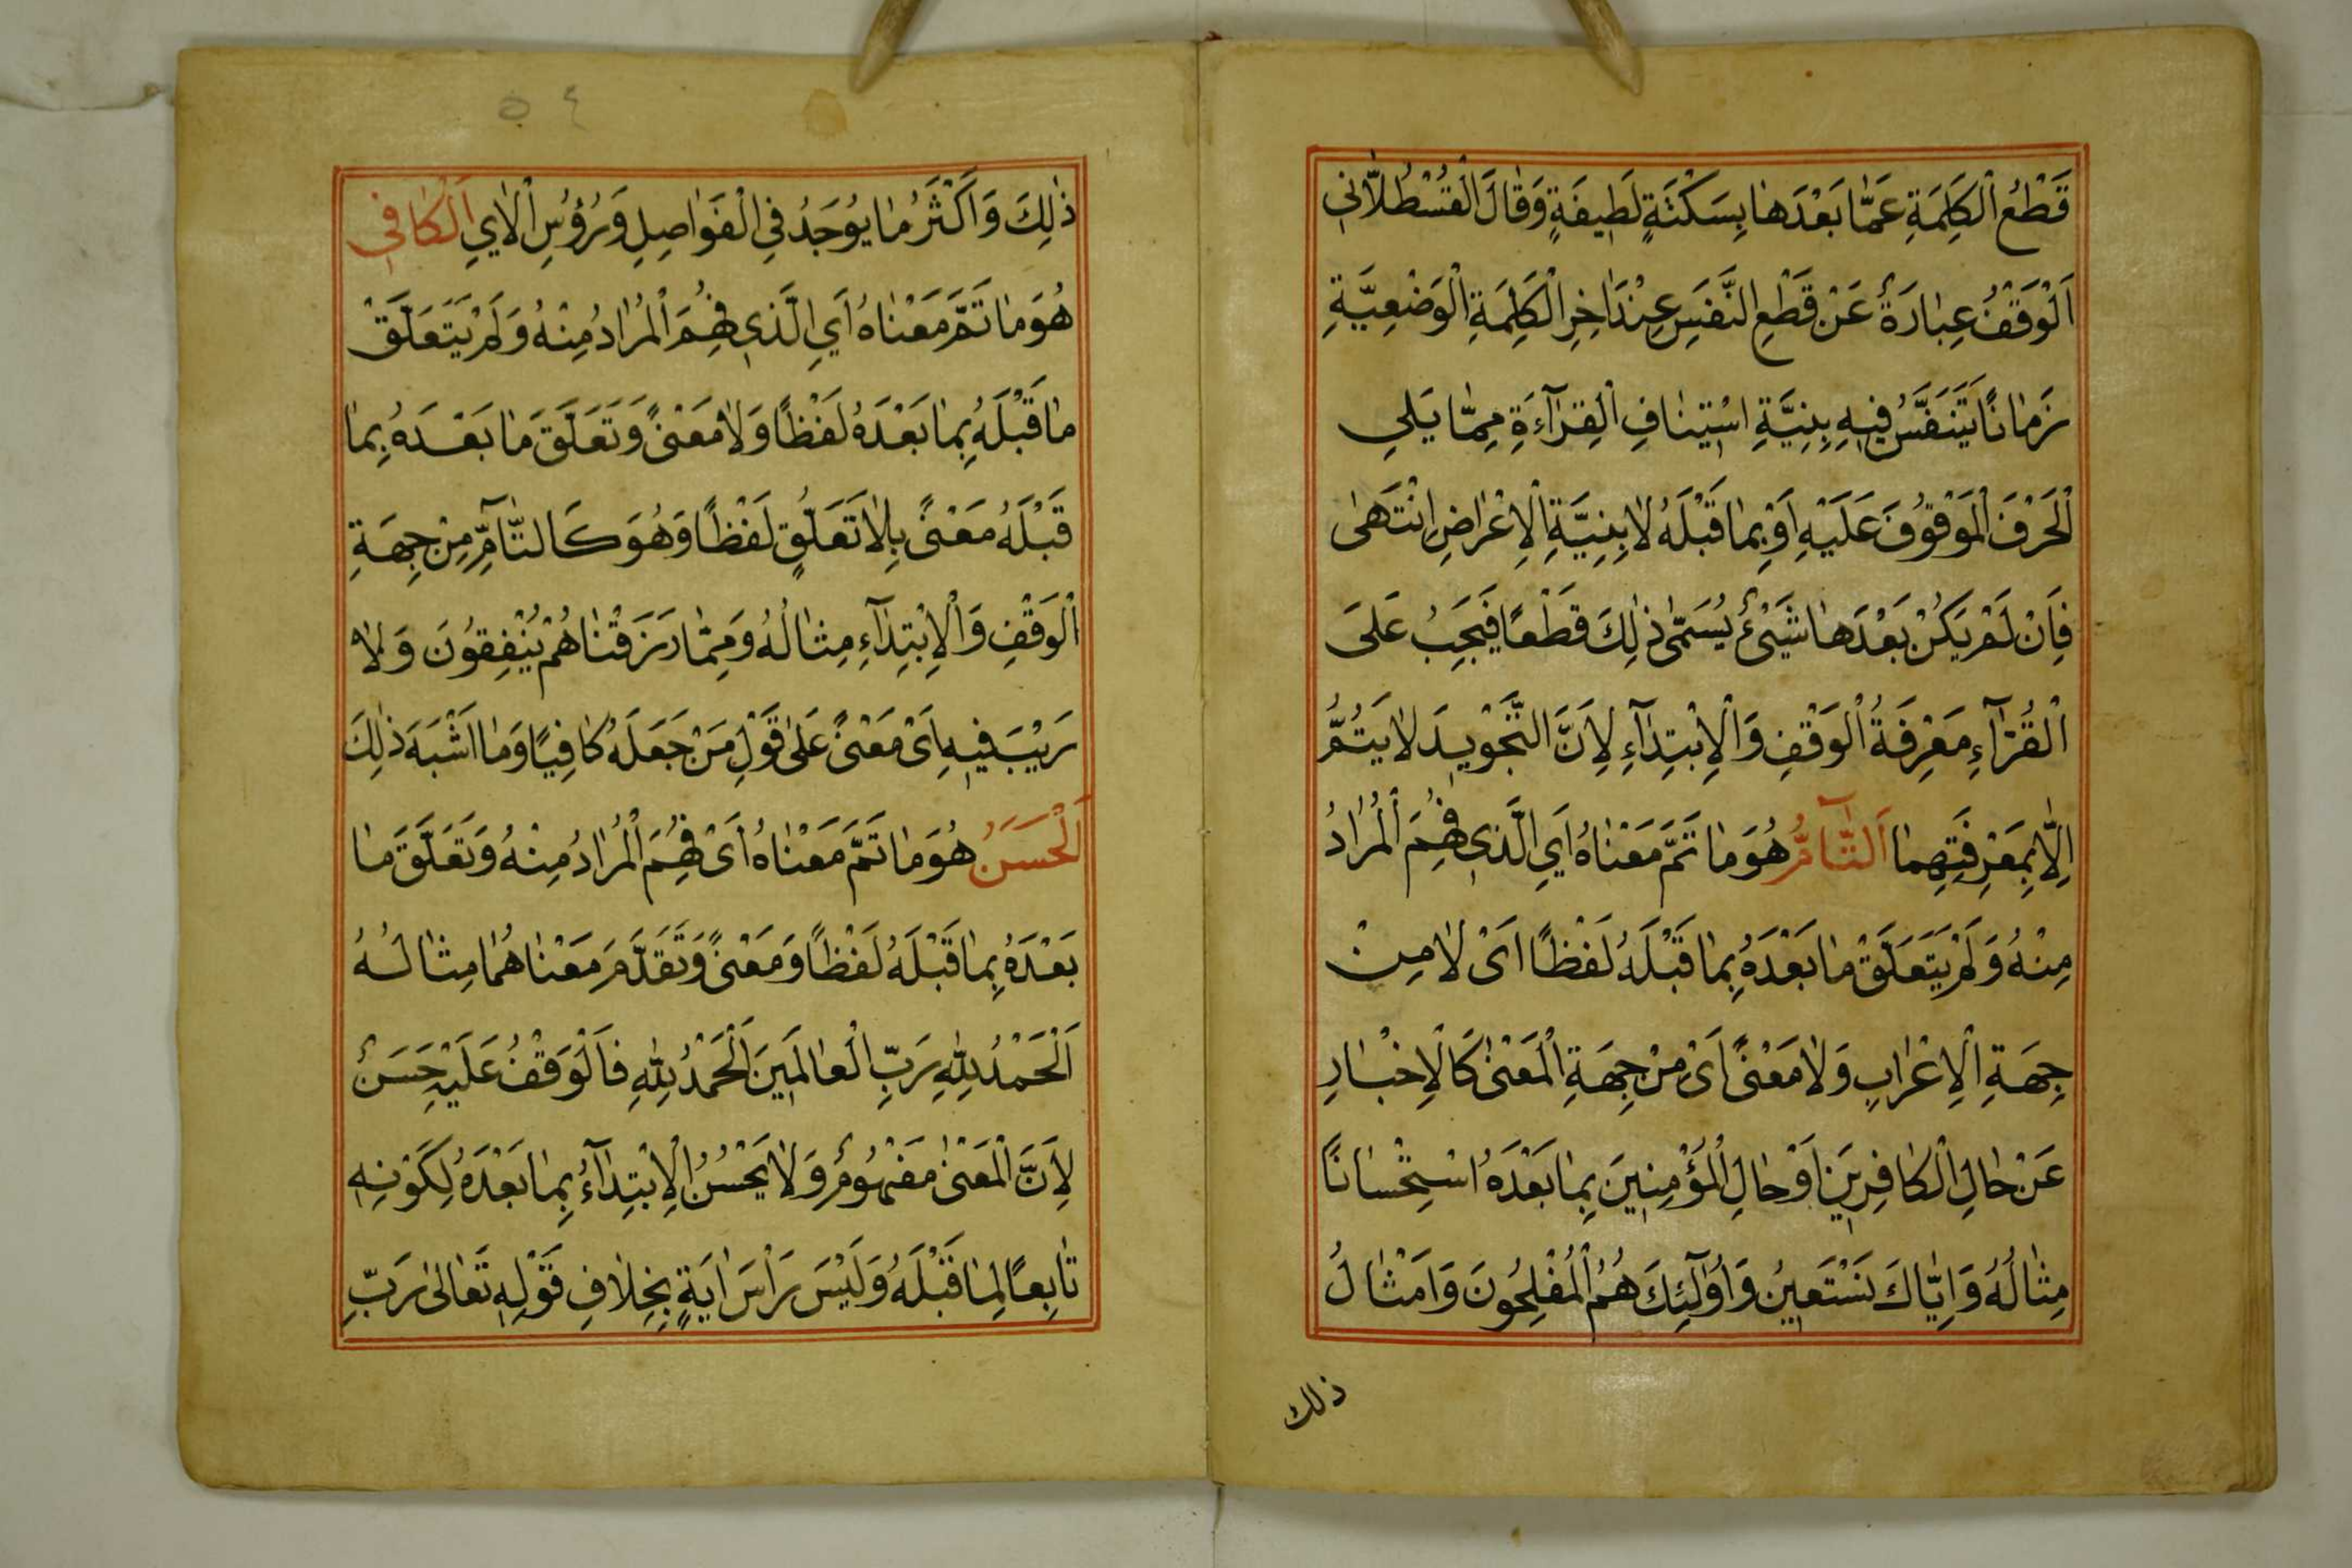 قَطْعُ الْكَلِمَةِ عَمَّا بَعْدَهَا بِسَكْتَةٍ لَطِيفَةٍ وَقَالَ الْقُسْطُلَّانِي
اَلْوَقْفُ عِبَارَةٌ عَنْ قَطْعِ النَّفَسِ عِنْدَ اٰخِرِ الْكَلِمَةِ الْوَضْعِيَّةِ
زَمَانًا يَتَنَفَّسُ فِيهِ بِنِيَّةِ اسْتِينَافِ الْقِرَآءَةِ مِمَّا يَلِي
الْحَرْفَ الْمَوْقُوفَ عَلَيْهِ اَوْ بِمَا قَبْلَهُ لَا بِنِيَّةِ الْاِعْرَاضِ انْتَهٰى
فَاِنْ لَمْ يَكُنْ بَعْدَهَا شَيْئٌ يُسَمّٰى ذٰلِكَ قَطْعًا فَيَجِبُ عَلَى
الْقُرَّآءِ مَعْرِفَةُ الْوَقْفِ وَالْاِبْتِدَآءِ لِاَنَّ التَّجْوِيدَ لَا يَتُمُّ
اِلَّا بِمَعْرِفَتِهِمَا اَلتَّآمُّ هُوَ مَا تَمَّ مَعْنَاهُ اَيِ الَّذِي فُهِمَ الْمُرَادُ
مِنْهُ وَلَمْ يَتَعَلَّقْ مَا بَعْدَهُ بِمَا قَبْلَهُ لَفْظًا اَىْ لَا مِنْ
جِهَةِ الْاِعْرَابِ وَلَا مَعْنًى اَىْ مِنْ جِهَةِ الْمَعْنٰى كَالْاِخْبَارِ
عَنْ حَالِ الْكَافِرِينَ اَوْ حَالِ الْمُؤْمِنِينَ بِمَا بَعْدَهُ اسْتِحْسَانًا
مِثَالُهُ وَاِيَّاكَ نَسْتَعِينُ وَاُولٰٓئِكَ هُمُ الْمُفْلِحُونَ وَاَمْثَالُ
ذلك
٥٤
ذٰلِكَ وَاَكْثَرُ مَا يُوجَدُ فِي الْفَوَاصِلِ وَرُؤُسِ الْاٰيِ اَلْكَافِي
هُوَ مَا تَمَّ مَعْنَاهُ اَيِ الَّذِي فُهِمَ الْمُرَادُ مِنْهُ وَلَمْ يَتَعَلَّقْ
مَا قَبْلَهُ بِمَا بَعْدَهُ لَفْظًا وَلَا مَعْنًى وَتَعَلَّقَ مَا بَعْدَهُ بِمَا
قَبْلَهُ مَعْنًى بِلَا تَعَلُّقٍ لَفْظًا وَهُوَ كَالتَّآمِّ مِنْ جِهَةِ
الْوَقْفِ وَالْاِبْتِدَآءِ مِثَالُهُ وَمِمَّا رَزَقْنَاهُمْ يُنْفِقُونَ وَلَا
رَيْبَ فِيهِ اَىْ مَعْنًى عَلٰى قَوْلِ مَنْ جَعَلَهُ كَافِيًا وَمَا اَشْبَهَ ذٰلِكَ
اَلْحَسَنُ هُوَ مَا تَمَّ مَعْنَاهُ اَىْ فُهِمَ الْمُرَادُ مِنْهُ وَتَعَلَّقَ مَا
بَعْدَهُ بِمَا قَبْلَهُ لَفْظًا وَمَعْنًى وَتَقَدَّمَ مَعْنَاهُمَا مِثَالُهُ
اَلْحَمْدُ لِلّٰهِ رَبِّ الْعَالَمِينَ اَلْحَمْدُ لِلّٰهِ فَالْوَقْفُ عَلَيْهِ حَسَنٌ
لِاَنَّ الْمَعْنٰى مَفْهُومٌ وَلَا يَحْسُنُ الْاِبْتِدَآءُ بِمَا بَعْدَهُ لِكَوْنِهِ
تَابِعًا لِمَا قَبْلَهُ وَلَيْسَ رَأْسَ اٰيَةٍ بِخِلَافِ قَوْلِهِ تَعَالٰى رَبِّ